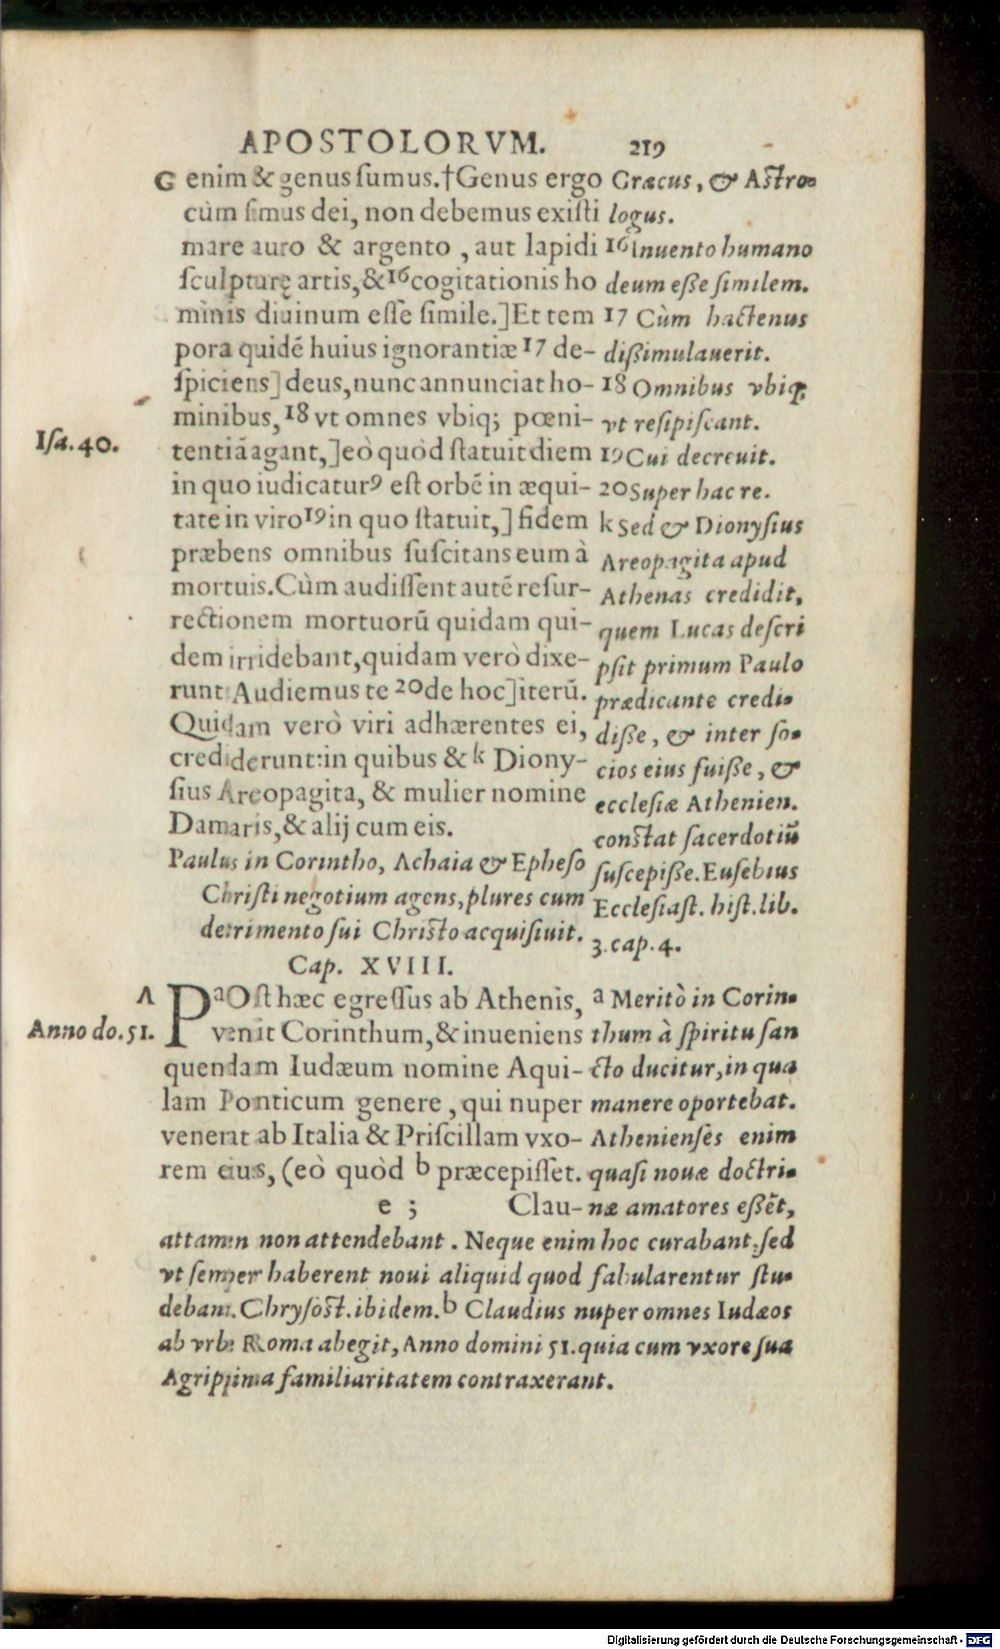 APOSTOLORVM. 219
G enim & genus sumus.†Genus ergo
cùm simus dei, non debemus existi
mare auro & argento , aut lapidi
sculpturę artis, &16cogitationis ho
minis diuinum esse simile.]Et tem
pora quidē huius ignorantiæ 17 de-
spiciens] deus, nunc annunciat ho-
minibus, 18 vt omnes vbiq; pœni-
Isa. 40.
tentiā agant,]eò quòd statuit diem
in quo iudicaturꝰ est orbē in æqui-
tate in viro19in quo statuit,] fidem
præbens omnibus suscitans eum à
mortuis.Cùm audissent autē resur-
rectionem mortuorū quidam qui-
dem irridebant, quidam verò dixe-
runt: Audiemus te 20de hoc]iterū.
Quidam verò viri adhærentes ei,
crediderunt:in quibus & k Diony-
sius Areopagita, & mulier nomine
Damaris, & alij cum eis.
Paulus in Corintho, Achaia & Epheso
Christi negotium agens, plures cum
detrimento sui Christo acquisiuit.
Cap. XVIII.
A PaOst hæc egressus ab Athenis,
Anno do. 51.
venit Corinthum, & inueniens
quendam Iudæum nomine Aqui-
lam Ponticum genere , qui nuper
venerat ab Italia & Priscillam vxo-
rem eius, (eò quòd b præcepisset.
e ; Clau-
Græcus, & Astro-
logus.
16 Inuento humano
deum esse similem.
17 Cùm hactenus
dissimulauerit.
18 Omnibus vbiq;
vt resipiscant.
19 Cui decreuit.
20 Super hac re.
k Sed & Dionysius
Areopagita apud
Athenas credidit,
quem Lucas descri
psit primum Paulo
prædicante credi-
disse, & inter so-
cios eius fuisse, &
ecclesiæ Athenien.
constat sacerdotiū
suscepisse. Eusebius
Ecclesiast. hist. lib.
3. cap. 4.
a Meritò in Corin-
thum à spiritu san
cto ducitur, in qua
manere oportebat.
Athenienses enim
quasi nouæ doctri-
næ amatores essēt,
attamen non attendebant . Neque enim hoc curabant, sed
vt semper haberent noui aliquid quod fabularentur stu-
debant. Chrysost. ibidem. b Claudius nuper omnes Iudæos
ab vrbe Roma abegit, Anno domini 51. quia cum vxore sua
Agrippina familiaritatem contraxerant.
Digitalisierung gefördert durch die Deutsche Forschungsgemeinschaft - DFG